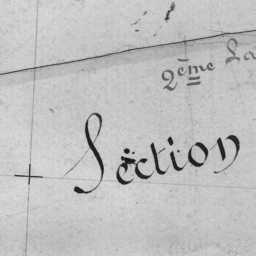 2ème
Section